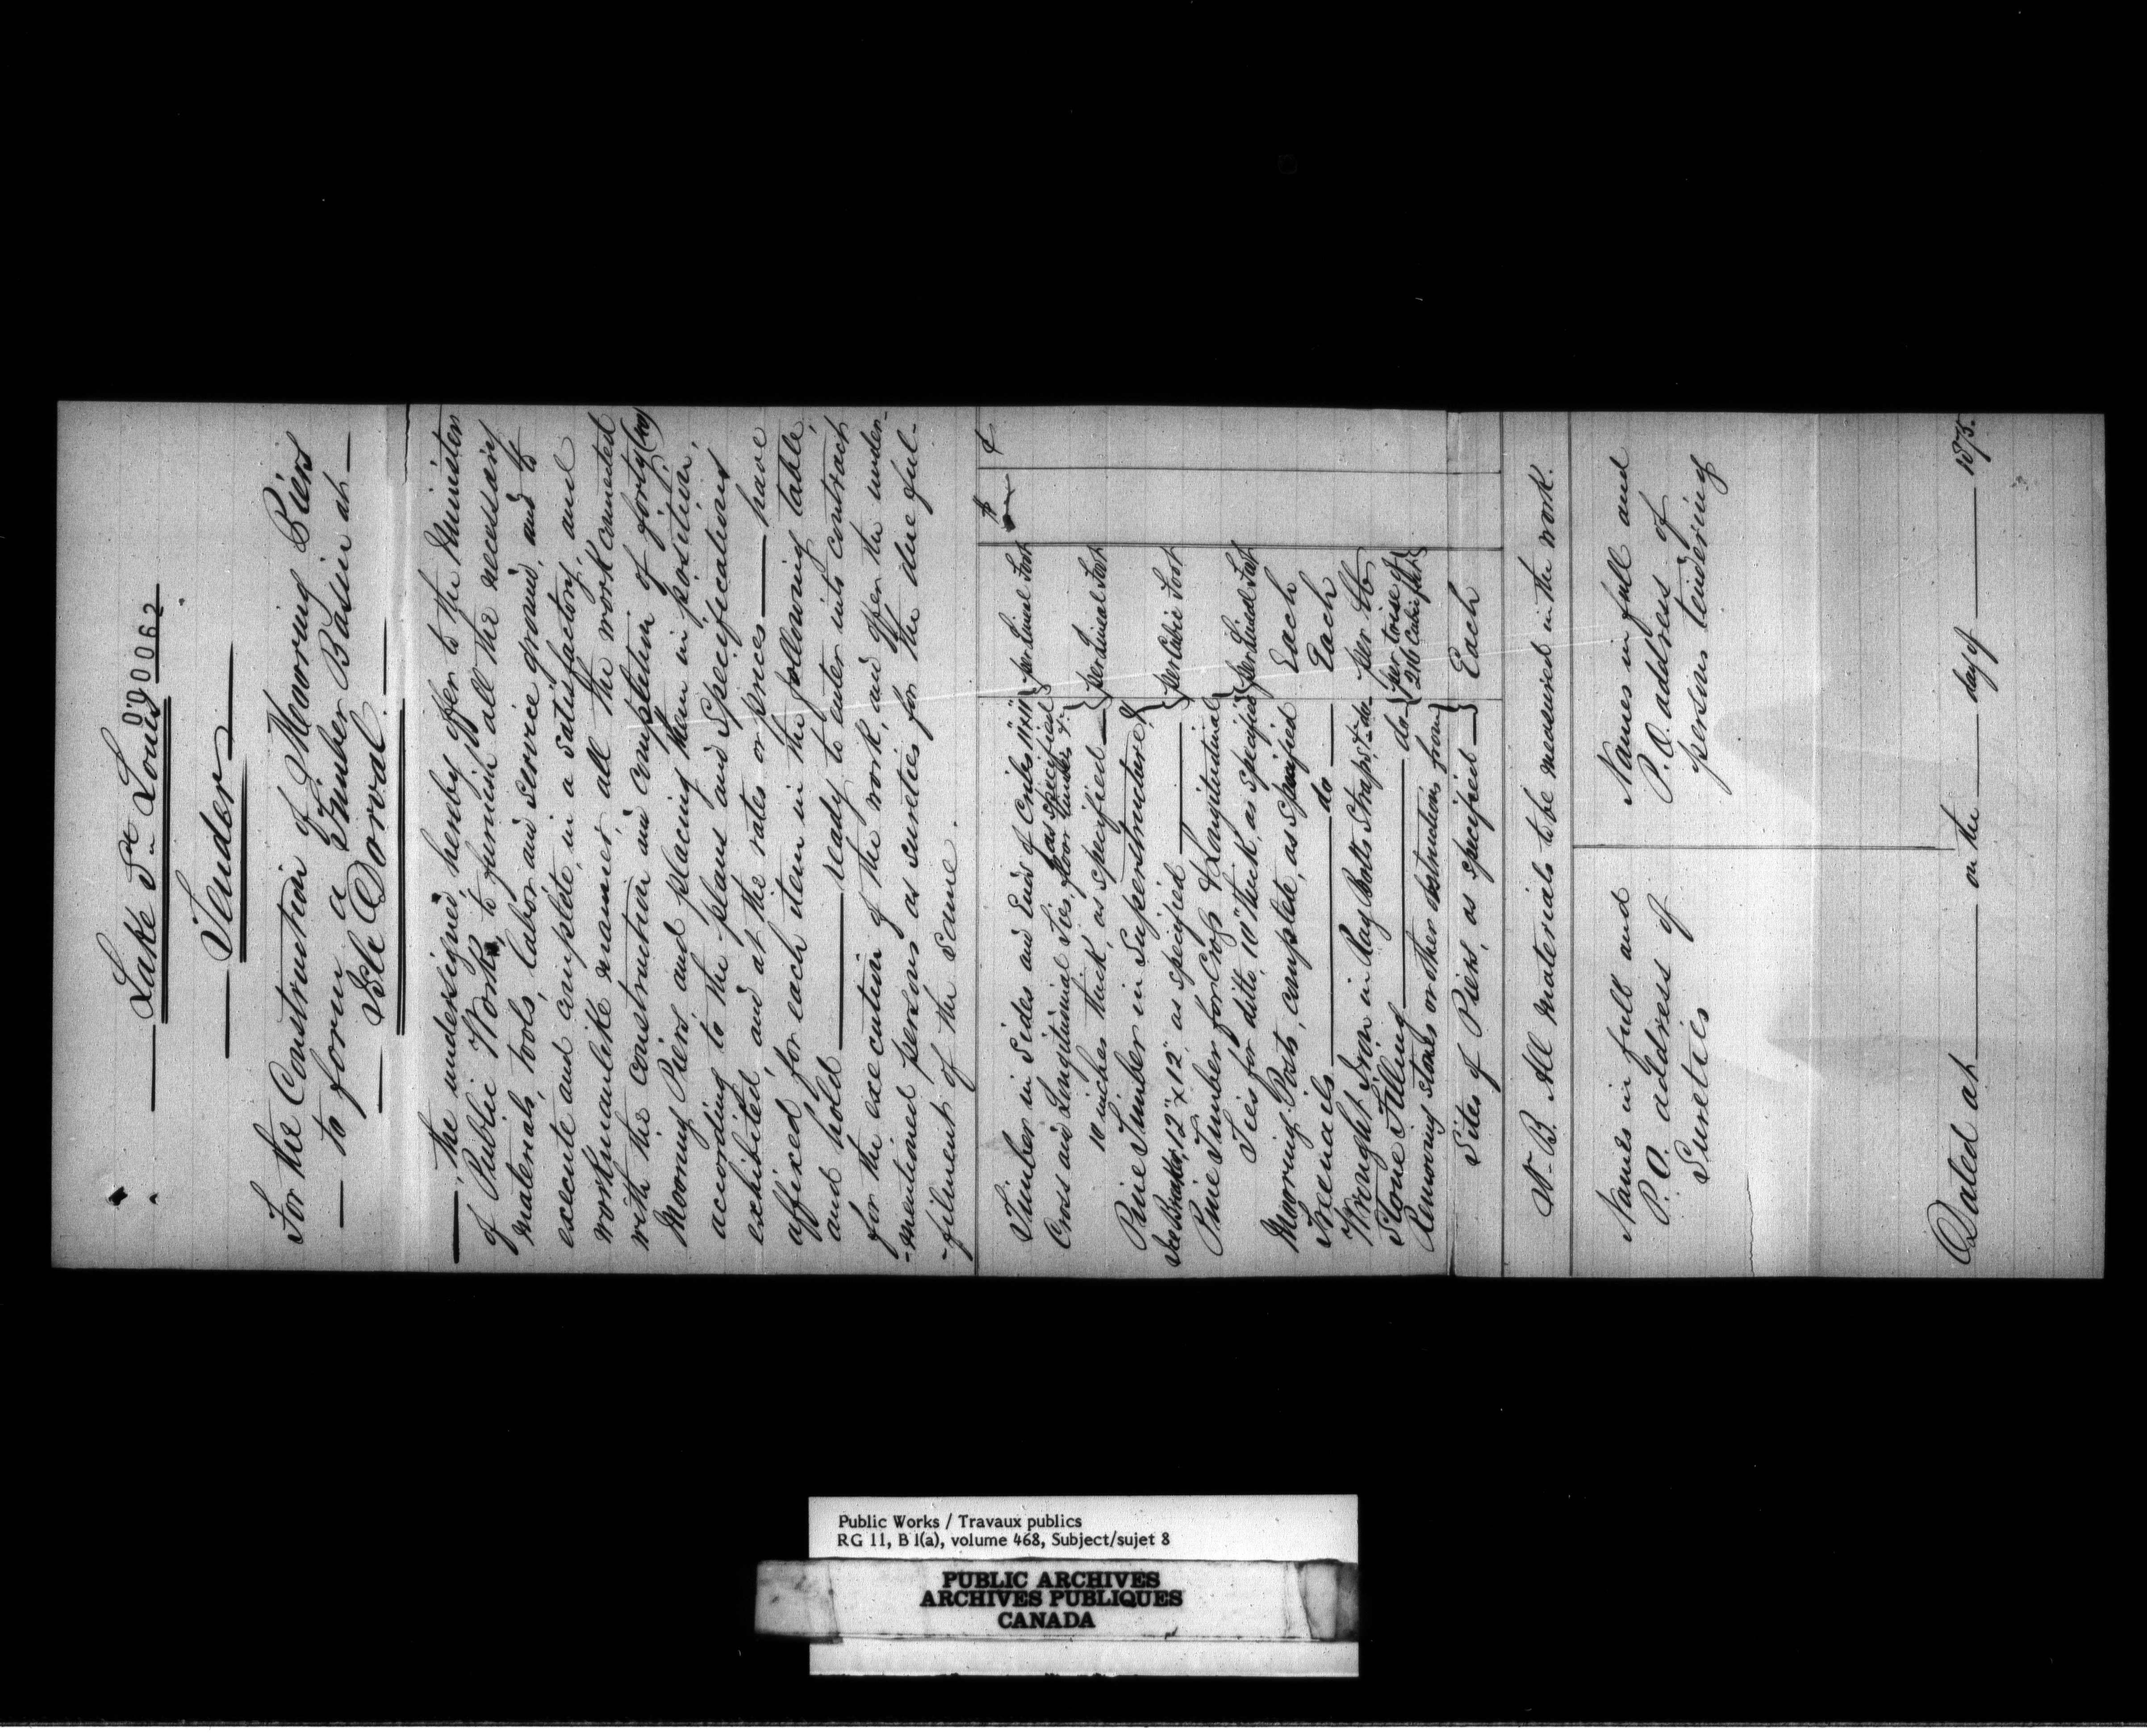 000062
Lake St Louis
Tender
For the Construction of Mooring Piers
to form a Timber Basin at
Isle Dorval.
the undersigned, hereby offer to the Minister
of Public Works, to furnish all the necessary
materials, tools, labor and service ground, and to
execute and complete, in a satisfactory, and
workmanlike manner, all the work connected
with the construction and completion of forty (40)
Mooring Piers, and placing them in position,
according to the plans and specifications
exhibited, and at the rates or prices have
affixed, for each item in the following table,
and hold ready to enter into contract
for the execution of the work, and offer the under-
-mentioned persons as sureties for the due ful-
-filment of the same.
$ ¢
Timber in Sides and Ends of Cribs 11"x11" as specified } per Lineal Foot
Cross and Longitudinal Ties, floor timber &c
10 inches thick, as specified } per Lineal Foot
Pine Timber in Superstructure, &
Ice Breaker, 12" x 12" as specified } per Cubic Foot
Pine Timber for Cross & Longitudinal
Ties for ditto, 10" thick, as specified } per Lineal Foot
Mooring Posts, complete, as specified Each
Treenails do Each
Wrought Iron in Rag Bolts Straps, &c do per lb
Stone Filling do { per toise of 216 Cubic feet }
Removing stones or other obstructions from
Sites of Piers, as specified } Each
N.B. All materials to be measured in the work.
Names in full and
P.O. address of
Sureties
Names in full and
P.O. address of
persons tendering
Dated at on the day of 1875.
Public Works / Travaux publics
RG 11, B 1(a), volume 468, Subject/sujet 8
PUBLIC ARCHIVES
ARCHIVES PUBLIQUES
CANADA